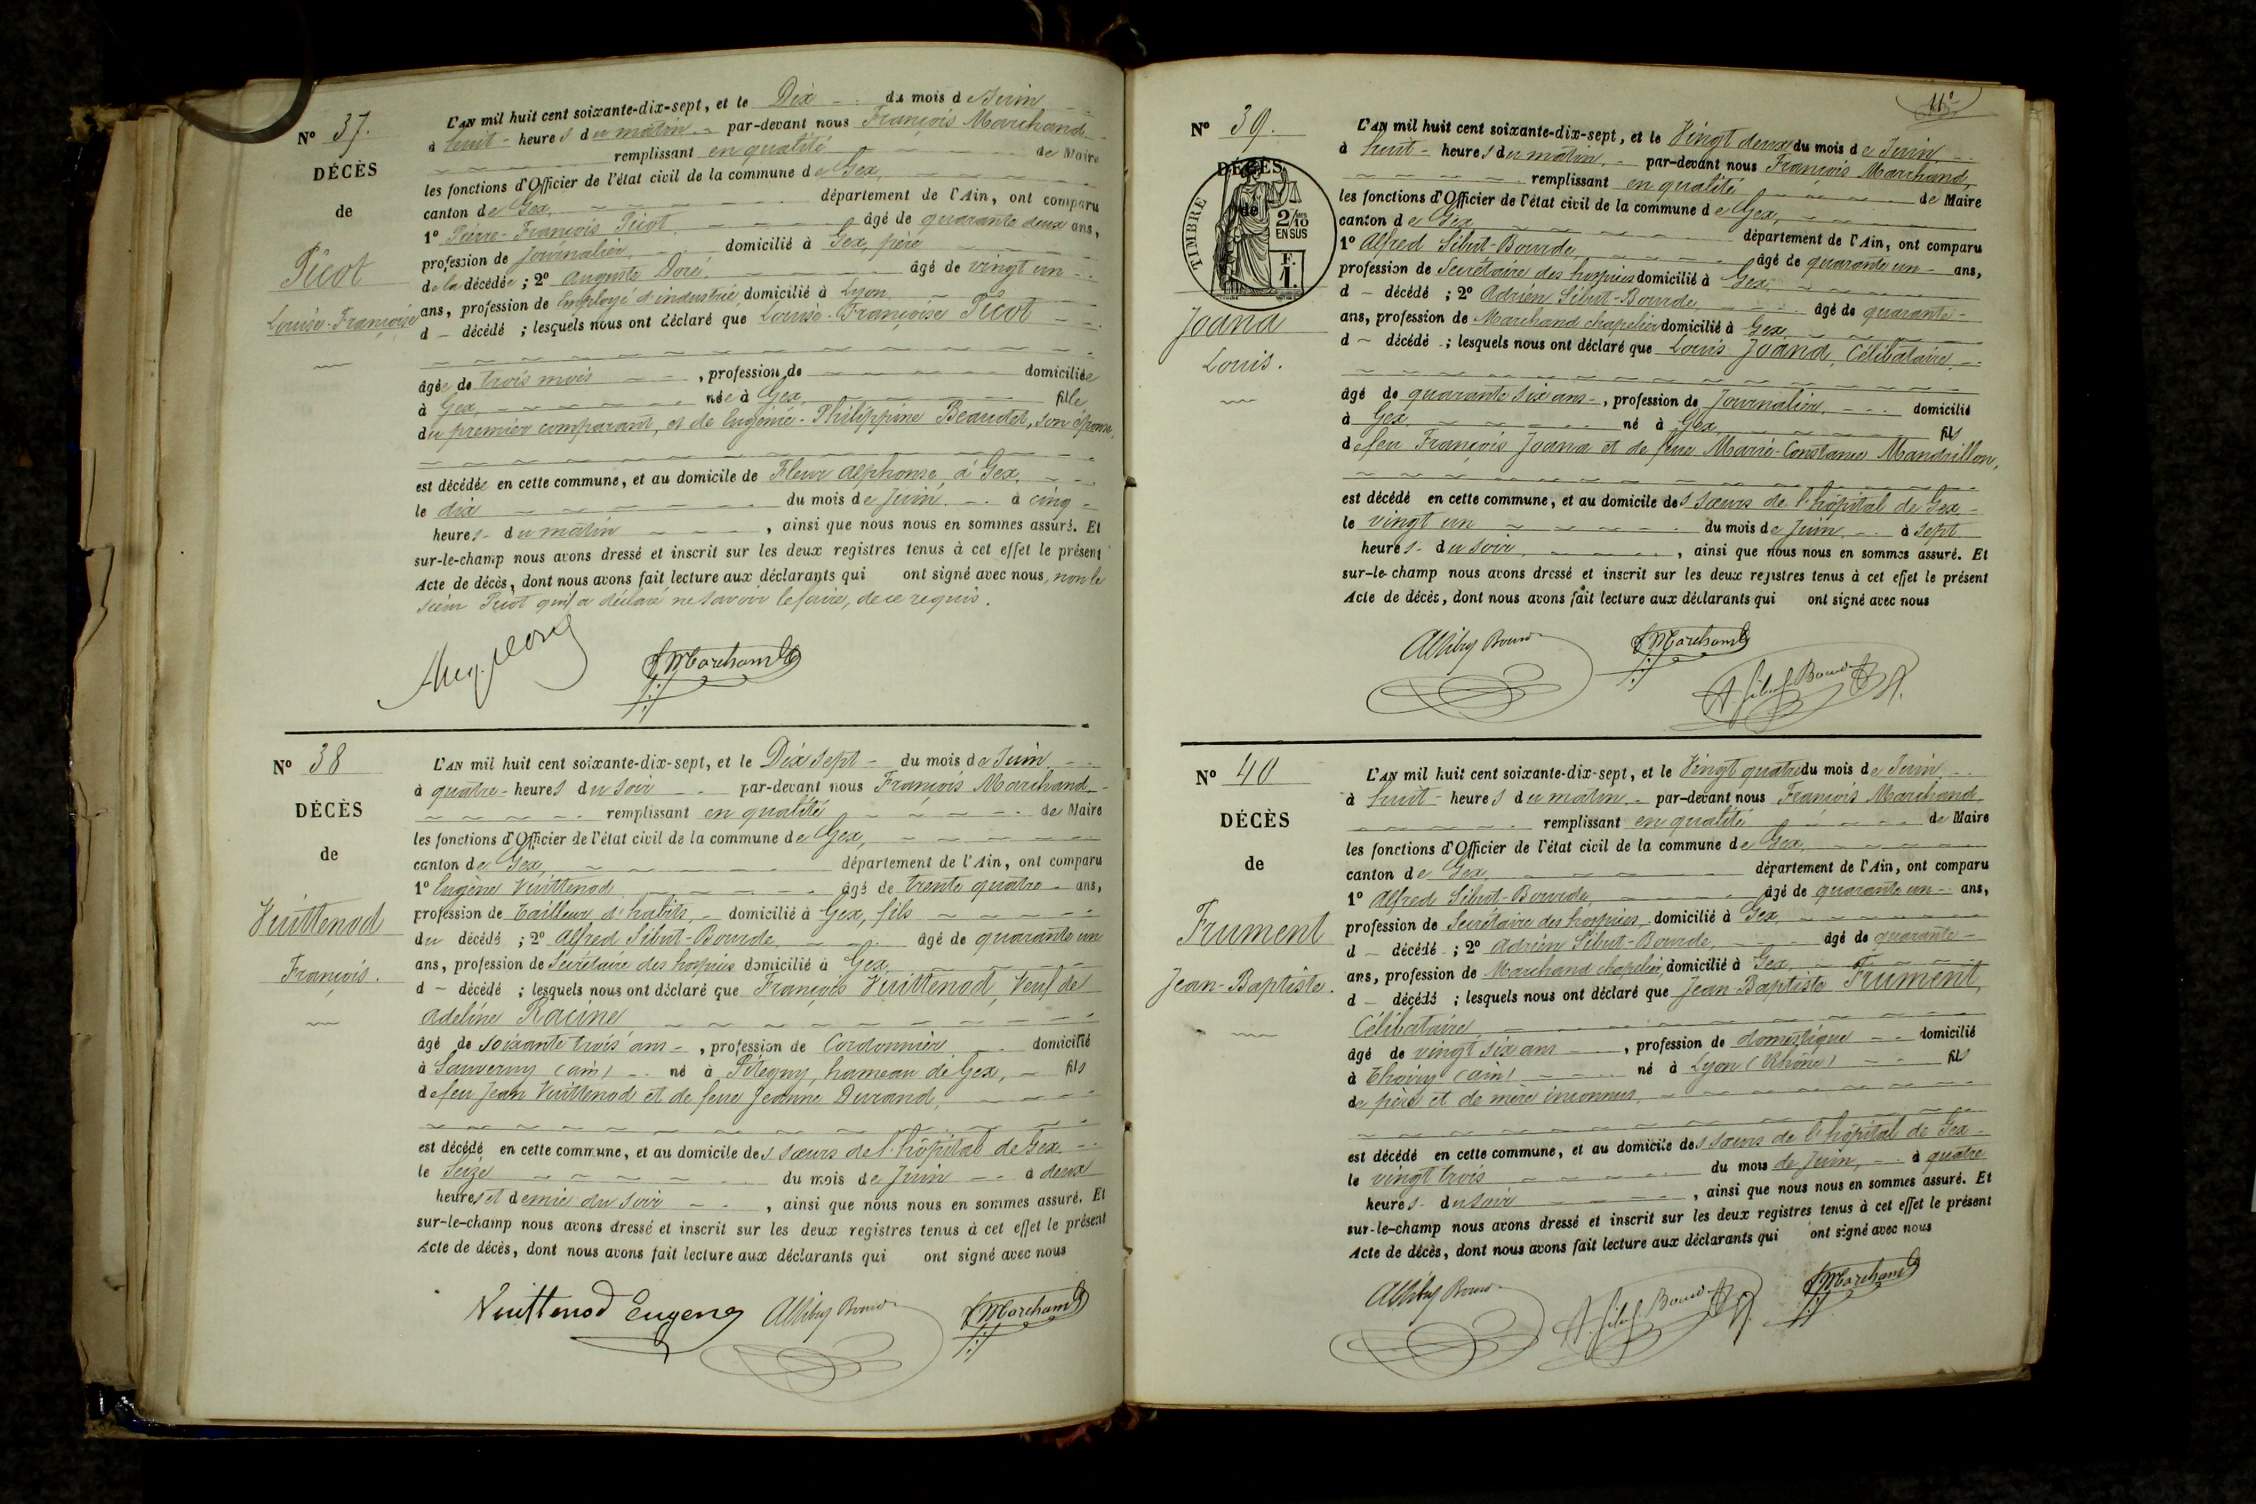 Nº 37.
DÉCÈS
de
Picot
Louise-Françoise
L'AN mil huit cent soixante-dix-sept, et le Dix du mois de Juin
à huit heures du matin par-devant nous François Marchand
remplissant en qualité de Maire
les fonctions d'Officier de l'état civil de la commune de Gex,
canton de Gex, département de l'Ain, ont comparu
1º Pierre-François Picot âgé de quarante deux ans,
profession de journalier, domicilié à Gex, père
de la décédée ; 2º Auguste Doré, âgé de vingt un
ans, profession de Employé d'industrie, domicilié à Lyon
d décédé ; lesquels nous ont déclaré que Louise-Françoise Picot
âgée de trois mois , profession de domiciliée
à Gex, née à Gex, fille
du premier comparant, et de Eugénie-Philippine Beaudet, son épouse,
est décédée en cette commune, et au domicile de Fleur Alphonse, à Gex,
le dix du mois de Juin à cinq
heures du matin , ainsi que nous nous en sommes assuré. Et
sur-le-champ nous avons dressé et inscrit sur les deux registres tenus à cet effet le présent
Acte de décès, dont nous avons fait lecture aux déclarants qui ont signé avec nous, non le
sieur Picot qui a déclaré ne savoir le faire, de ce requis.
Aug. Doré
F Marchand
Nº 38
DÉCÈS
de
Vuittenod
François.
L'AN mil huit cent soixante-dix-sept, et le Dix sept du mois de Juin
à quatre heures du soir par-devant nous François Marchand
remplissant en qualité de Maire
les fonctions d'Officier de l'état civil de la commune de Gex,
canton de Gex, département de l'Ain, ont comparu
1º Eugène Vuittenod âgé de trente quatre ans,
profession de Tailleur d'habits, domicilié à Gex, fils
du décédé ; 2º Alfred Sibut-Bourde, âgé de quarante un
ans, profession de Secrétaire des hospices domicilié à Gex,
d décédé ; lesquels nous ont déclaré que François Vuittenod, Veuf de
Adeline Racine
âgé de soixante trois ans , profession de Cordonnier domicilié
à Sauverny (Ain) né à Pitegny, hameau de Gex, fils
de feu Jean Vuittenod et de feue Jeanne Durand,
est décédé en cette commune, et au domicile des sœurs de l'hôpital de Gex
le Seize du mois de Juin à deux
heures et demie du soir , ainsi que nous nous en sommes assuré. Et
sur-le-champ nous avons dressé et inscrit sur les deux registres tenus à cet effet le présent
Acte de décès, dont nous avons fait lecture aux déclarants qui ont signé avec nous
Vuittenod Eugene
ASibut Bourde
F Marchand
11e
Nº 39.
DÉCÈS
de
TIMBRE
2/10 EN SUS
F. 1.
Joana
Louis.
L'AN mil huit cent soixante-dix-sept, et le Vingt deux du mois de Juin
à huit heures du matin par-devant nous François Marchand,
remplissant en qualité de Maire
les fonctions d'Officier de l'état civil de la commune de Gex,
canton de Gex département de l'Ain, ont comparu
1º Alfred Sibut-Bourde, âgé de quarante un ans,
profession de Secrétaire des hospices domicilié à Gex,
d décédé ; 2º Adrien Sibut-Bourde, âgé de quarante
ans, profession de Marchand chapelier domicilié à Gex,
d décédé ; lesquels nous ont déclaré que Louis Joana, Célibataire,
âgé de quarante six ans , profession de Journalier, domicilié
à Gex, né à Gex, fils
de feu François Joana et de feue Marie-Constance Mandrillon,
est décédé en cette commune, et au domicile des sœurs de l'hôpital de Gex
le vingt un du mois de Juin à sept
heures du soir , ainsi que nous nous en sommes assuré. Et
sur-le-champ nous avons dressé et inscrit sur les deux registres tenus à cet effet le présent
Acte de décès, dont nous avons fait lecture aux déclarants qui ont signé avec nous
ASibut Bourde
F Marchand
A Sibut Bourde
Nº 40
DÉCÈS
de
Frument
Jean-Baptiste.
L'AN mil huit cent soixante-dix-sept, et le Vingt quatre du mois de Juin
à huit heures du matin par-devant nous François Marchand,
remplissant en qualité de Maire
les fonctions d'Officier de l'état civil de la commune de Gex,
canton de Gex, département de l'Ain, ont comparu
1º Alfred Sibut-Bourde, âgé de quarante un ans,
profession de Secrétaire des hospices, domicilié à Gex
d décédé ; 2º Adrien Sibut-Bourde, âgé de quarante
ans, profession de Marchand chapelier, domicilié à Gex,
d décédé ; lesquels nous ont déclaré que Jean-Baptiste Frument,
Célibataire
âgé de vingt six ans , profession de domestique domicilié
à Thoiry (Ain) né à Lyon (Rhône) fils
de père et de mère inconnus,
est décédé en cette commune, et au domicile des sœurs de l'hôpital de Gex
le vingt trois du mois de Juin, à quatre
heures du soir , ainsi que nous nous en sommes assuré. Et
sur-le-champ nous avons dressé et inscrit sur les deux registres tenus à cet effet le présent
Acte de décès, dont nous avons fait lecture aux déclarants qui ont signé avec nous
ASibut Bourde
A. Sibut Bourde
F Marchand